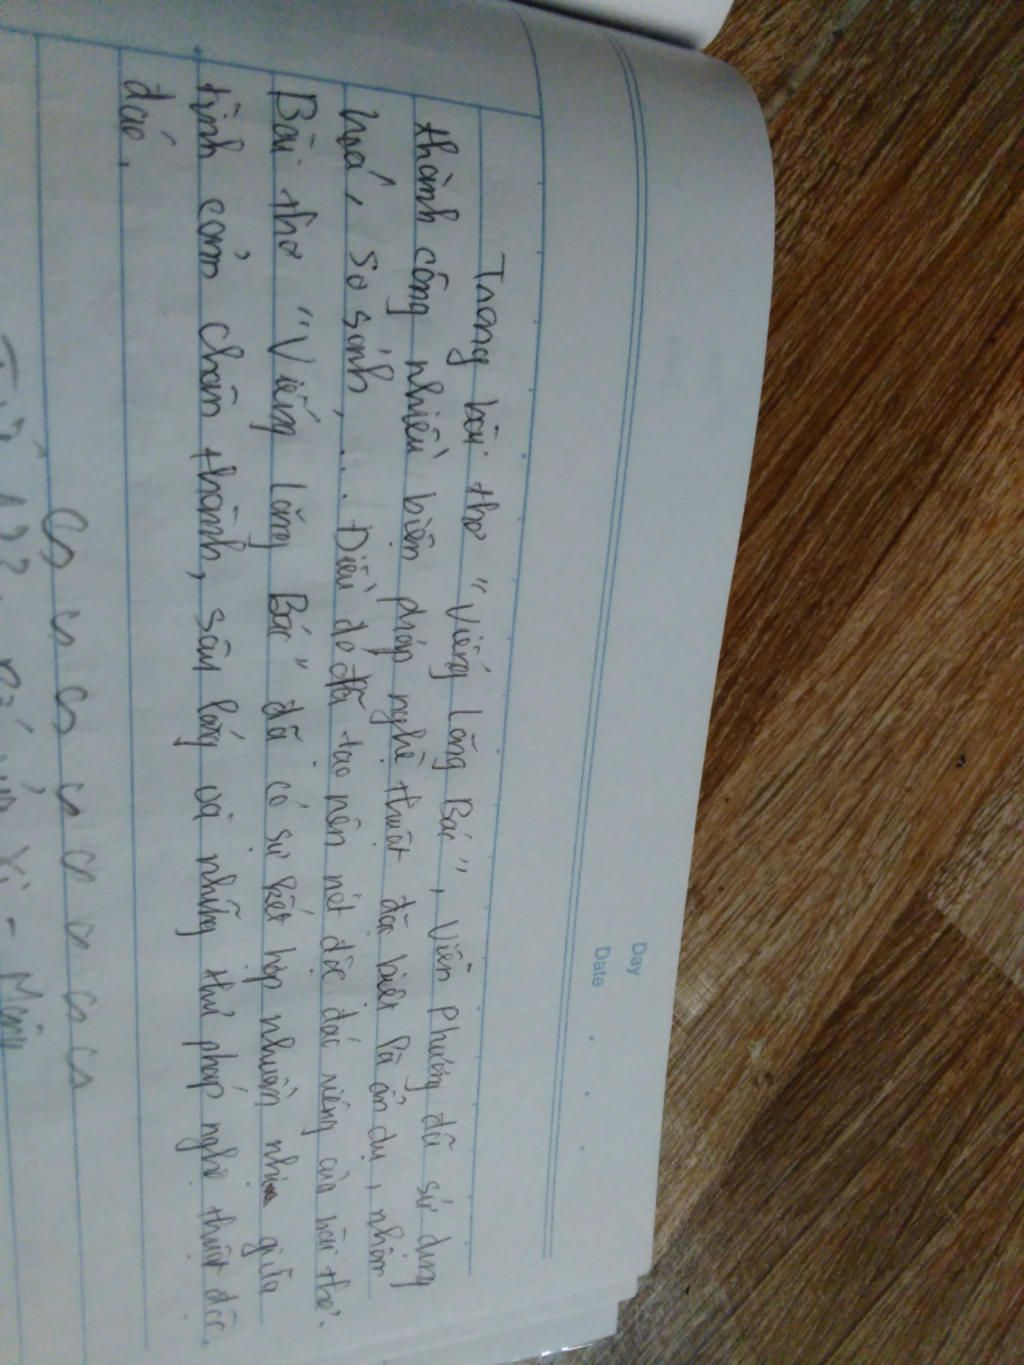 Day
Date
Trong bài thơ "Viếng Lăng Bác", Viễn Phương đã sử dụng
thành công nhiều biện pháp nghệ thuật đặc biệt là ẩn dụ, nhân
hoá, so sánh, ... Điều đó đã tạo nên nét độc đáo riêng của bài thơ.
Bài thơ "Viếng Lăng Bác" đã có sự kết hợp nhuần nhị giữa
tình cảm chân thành, sâu lắng và những thủ pháp nghệ thuật độc
đáo.